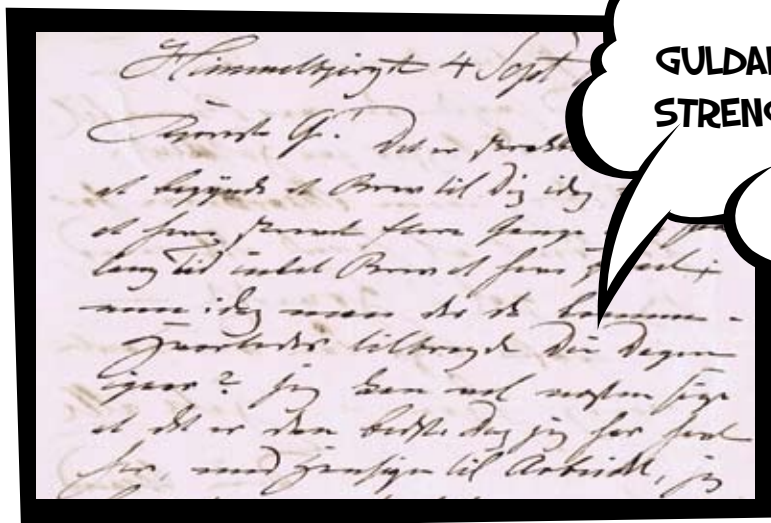 Himmelbjerget 4 Sept
Kjæreste G! Det er
at begynde et Brev til Dig idag
at have skrevet flere Gange
lang Tid intet Brev at have
men idag maa der da komme -
Hvorledes tilbragte Du Dagen
igaar? jeg kan vel næsten sige
at det er den bedste Dag jeg har havt
her, med Hensyn til Arbeidet, jeg
GULDA
STREN